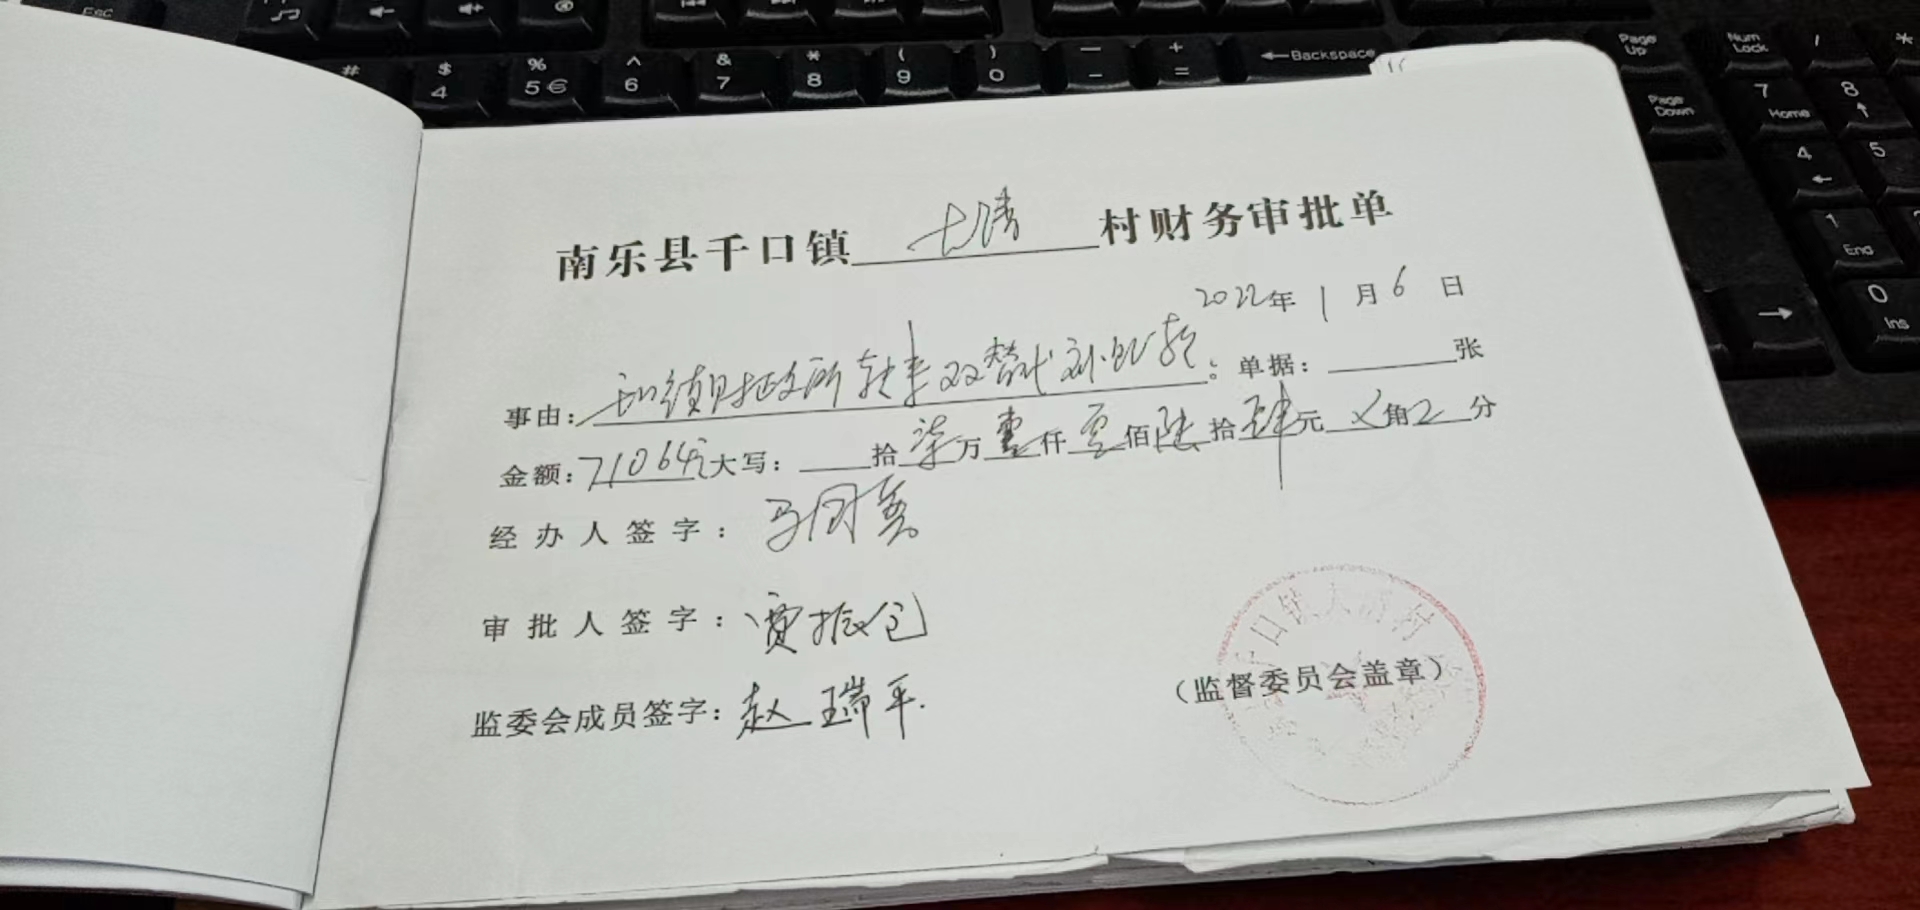 南乐县千口镇 大清 村财务审批单
2022年 1 月 6 日
事由:到镇财政所转来双替代 : 单据: 张
金额:71064元大写: 拾柒万壹仟零佰陆拾肆元 角 分
经办人签字:
审批人签字:贾振仓
监委会成员签字:赵瑞平.
(监督委员会盖章)
Esc
# $ 4 % 5 € ^ 6 & 7 * 8 ( 9 ) 0 — - + = ←Backspace
Page Up
Page Down
Num Lock / *
7 Home 8
4 5
1 End
0 Ins